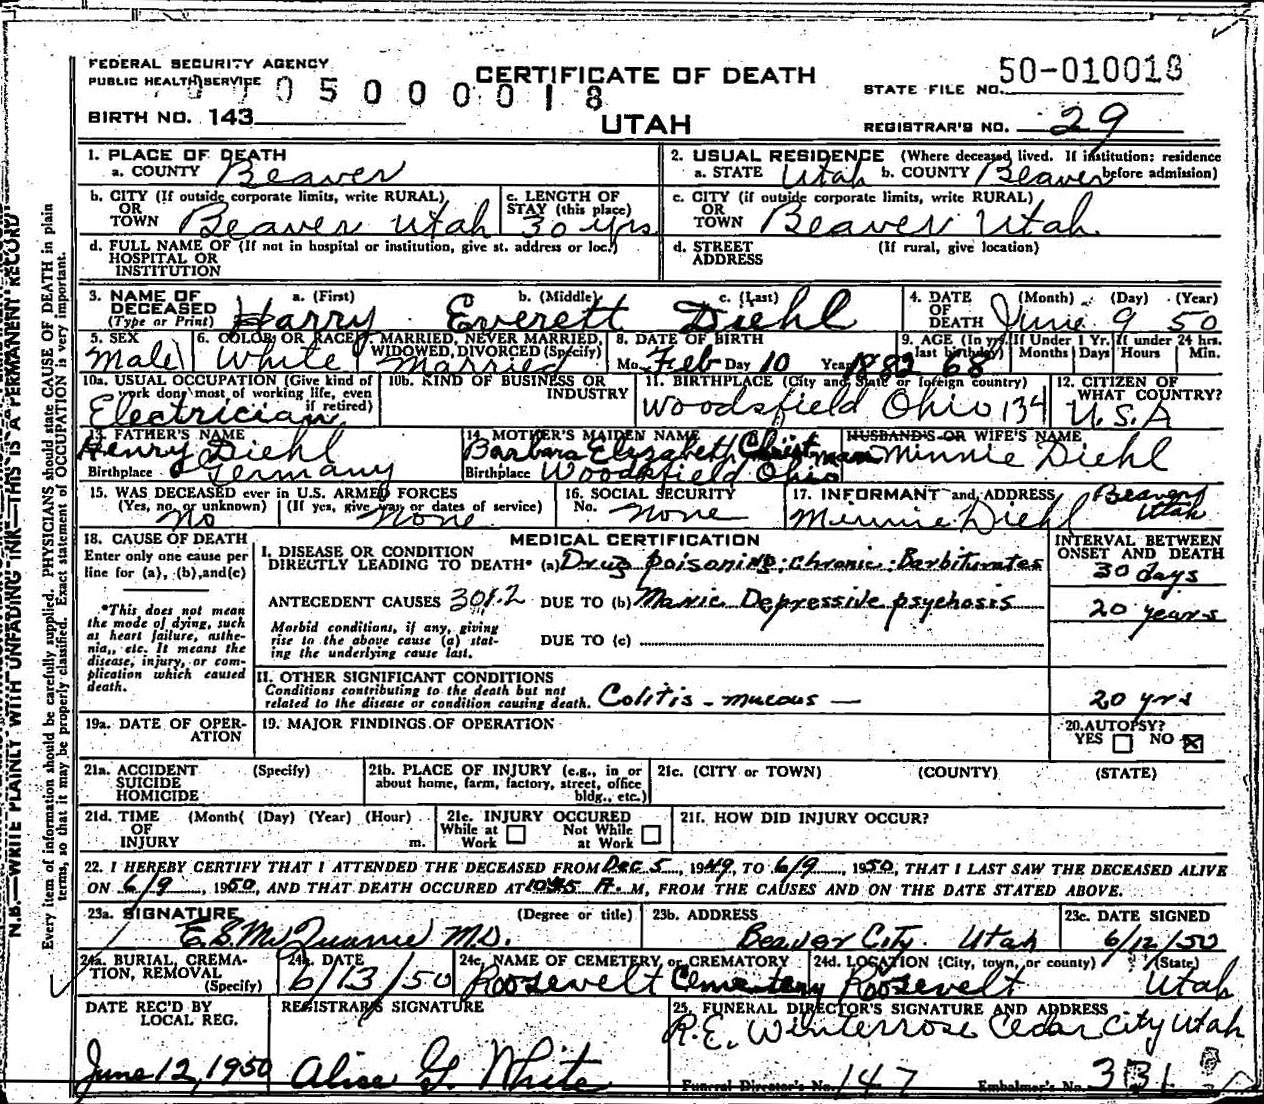 FEDERAL SECURITY AGENCY
PUBLIC HEALTH SERVICE
CERTIFICATE OF DEATH
50-010018
STATE FILE NO.
05000018
BIRTH NO. 143
UTAH
REGISTRAR'S NO. 29
1. PLACE OF DEATH
a. COUNTY Beaver
2. USUAL RESIDENCE (Where deceased lived. If institution: residence before admission)
a. STATE Utah b. COUNTY Beaver
b. CITY (If outside corporate limits, write RURAL)
OR
TOWN Beaver Utah
c. LENGTH OF
STAY (this place)
30 yrs
c. CITY (if outside corporate limits, write RURAL)
OR
TOWN Beaver Utah.
d. FULL NAME OF (If not in hospital or institution, give st. address or loc.)
HOSPITAL OR
INSTITUTION
d. STREET (If rural, give location)
ADDRESS
3. NAME OF a. (First) b. (Middle) c. (Last)
DECEASED
(Type or Print) Harry Everett Diehl
4. DATE (Month) (Day) (Year)
OF
DEATH June 9 50
5. SEX
Male
6. COLOR OR RACE
White
7. MARRIED, NEVER MARRIED,
WIDOWED, DIVORCED (Specify)
Married
8. DATE OF BIRTH
Mo. Feb Day 10 Year 1882
9. AGE (In yrs. last birthday) If Under 1 Yr. If under 24 hrs.
68 Months Days Hours Min.
10a. USUAL OCCUPATION (Give kind of
work done most of working life, even
if retired)
Electrician
10b. KIND OF BUSINESS OR
INDUSTRY
11. BIRTHPLACE (City and State or foreign country)
Woodsfield Ohio 134
12. CITIZEN OF
WHAT COUNTRY?
U.S.A
13. FATHER'S NAME
Henry Diehl
Birthplace Germany
14. MOTHER'S MAIDEN NAME
Barbara Elizabeth Christman
Birthplace Woodsfield Ohio
HUSBAND'S OR WIFE'S NAME
Minnie Diehl
15. WAS DECEASED ever in U.S. ARMED FORCES
(Yes, no, or unknown) (If yes, give war or dates of service)
No None
16. SOCIAL SECURITY
No. None
17. INFORMANT and ADDRESS
Minnie Diehl Beaver Utah
18. CAUSE OF DEATH
Enter only one cause per
line for (a), (b), and (c)
*This does not mean
the mode of dying, such
as heart failure, asthe-
nia, etc. It means the
disease, injury, or com-
plication which caused
death.
MEDICAL CERTIFICATION
INTERVAL BETWEEN
ONSET AND DEATH
I. DISEASE OR CONDITION
DIRECTLY LEADING TO DEATH* (a) Drug poisoning; chronic; Barbiturates
30 days
ANTECEDENT CAUSES 301.2 DUE TO (b) Manic Depressive psychosis
20 years
Morbid conditions, if any, giving
rise to the above cause (a) stat-
ing the underlying cause last.
DUE TO (c)
II. OTHER SIGNIFICANT CONDITIONS
Conditions contributing to the death but not
related to the disease or condition causing death. Colitis - mucous —
20 yrs
19a. DATE OF OPER-
ATION
19. MAJOR FINDINGS OF OPERATION
20. AUTOPSY?
YES NO
21a. ACCIDENT (Specify)
SUICIDE
HOMICIDE
21b. PLACE OF INJURY (e.g., in or
about home, farm, factory, street, office
bldg., etc.)
21c. (CITY or TOWN) (COUNTY) (STATE)
21d. TIME (Month( (Day) (Year) (Hour)
OF
INJURY m.
21e. INJURY OCCURED
While at Work Not While at Work
21f. HOW DID INJURY OCCUR?
22. I HEREBY CERTIFY THAT I ATTENDED THE DECEASED FROM Dec 5, 1949, TO 6/9, 1950, THAT I LAST SAW THE DECEASED ALIVE
ON 6/9, 1950, AND THAT DEATH OCCURED AT 1045 A. M, FROM THE CAUSES AND ON THE DATE STATED ABOVE.
23a. SIGNATURE (Degree or title)
E.S. McQuarrie M.D.
23b. ADDRESS
Beaver City. Utah
23c. DATE SIGNED
6/12/50
24a. BURIAL, CREMA-
TION, REMOVAL
(Specify)
24b. DATE
6/13/50
24c. NAME OF CEMETERY or CREMATORY
Roosevelt Cemetery
24d. LOCATION (City, town, or county) (State)
Roosevelt Utah
DATE REC'D BY
LOCAL REG.
June 12, 1950
REGISTRAR'S SIGNATURE
Alice G. White
25. FUNERAL DIRECTOR'S SIGNATURE AND ADDRESS
R.E. Winterrose Cedar City Utah
Funeral Director's No. 147 Embalmer's No. 331
N.B.—WRITE PLAINLY WITH UNFADING INK—THIS IS A PERMANENT RECORD
Every item of information should be carefully supplied. PHYSICIANS should state CAUSE OF DEATH in plain
terms, so that it may be properly classified. Exact statement of OCCUPATION is very important.